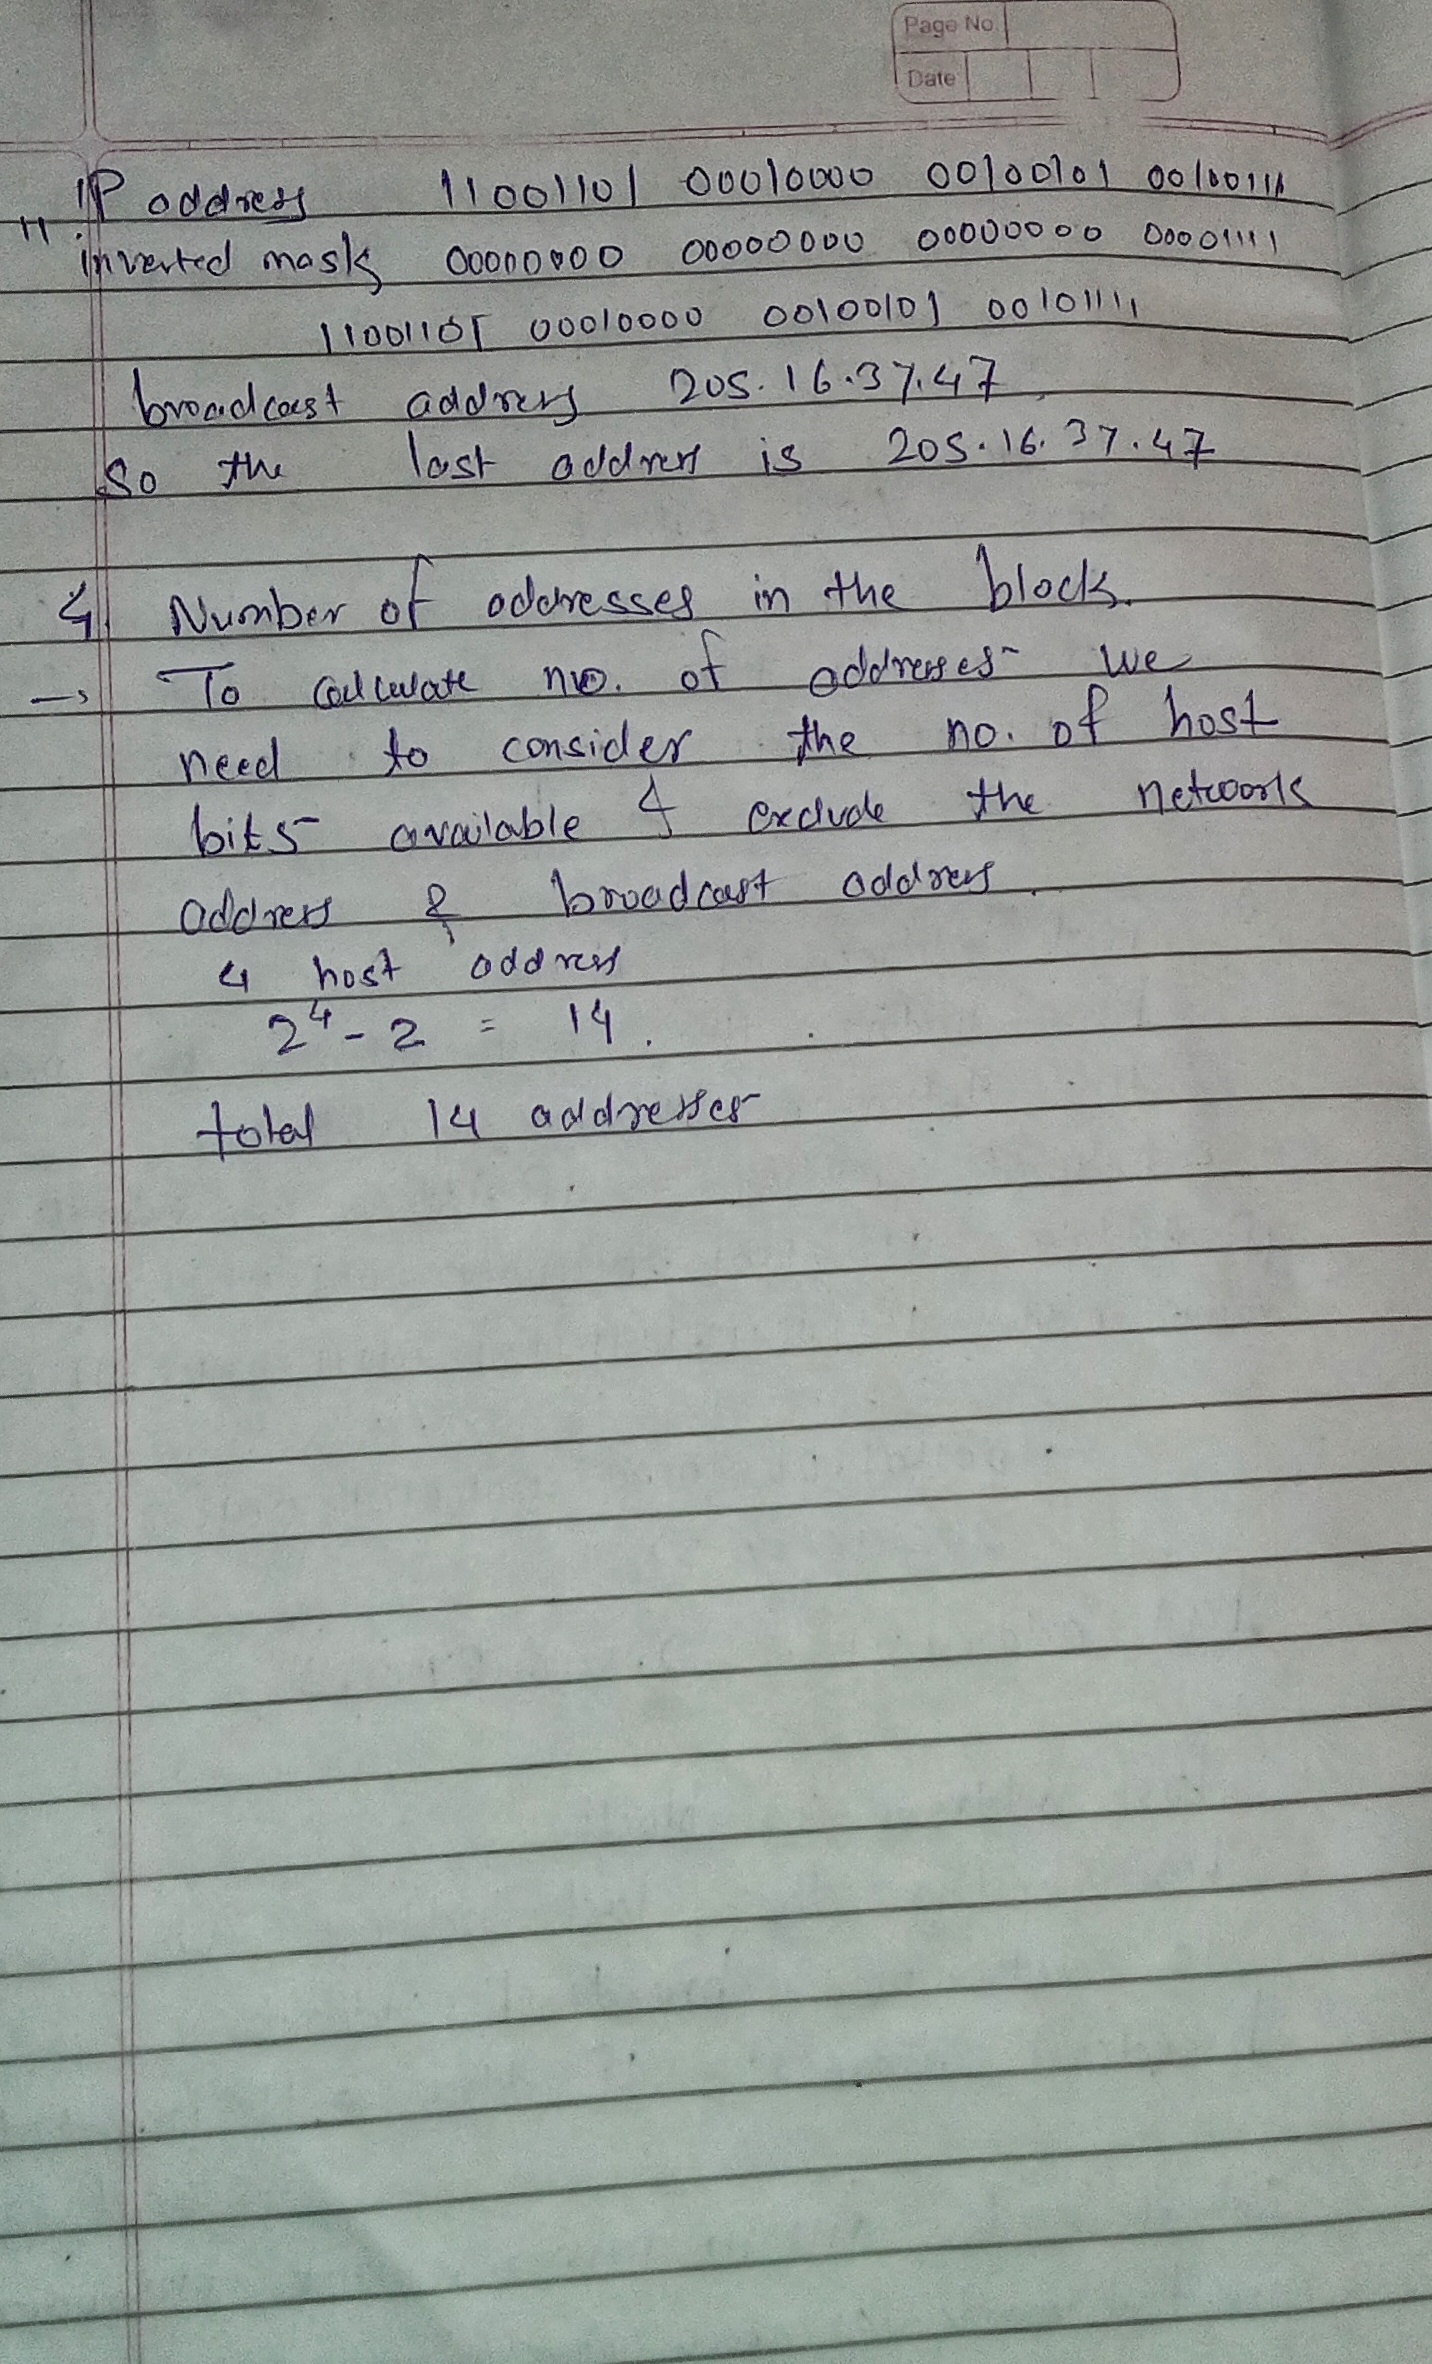 Page No.
Date
IP address 11001101 00010000 00100101 00100111
" inverted mask 00000000 00000000 00000000 00001111
11001101 00010000 00100101 00101111
broadcast address 205.16.37.47
So the last address is 205.16.37.47
4. Number of addresses in the block.
→ To calculate no. of addresses we
need to consider the no. of host
bits available & exclude the network
address & broadcast address.
4 host address
2⁴ - 2 = 14.
total 14 addresses